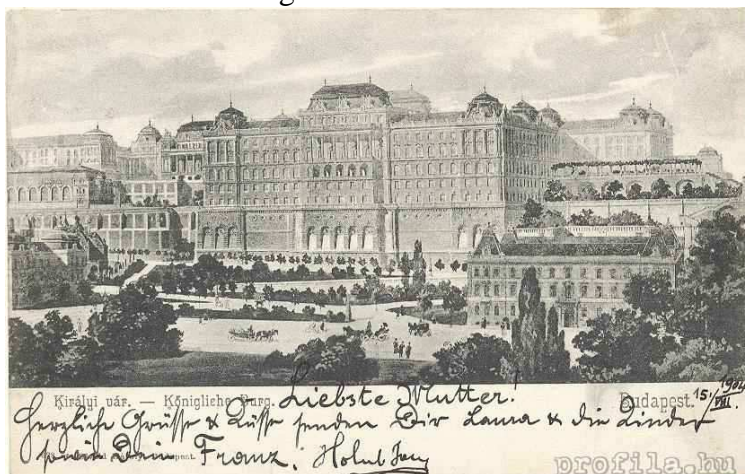 Királyi vár. — Königliche Burg.
Budapest.
Liebste Mutter!
15/VIII. 1904
Herzliche Grüsse & Küsse senden Dir Lama & die Kinder
sowie Dein Franz.
profila.hu